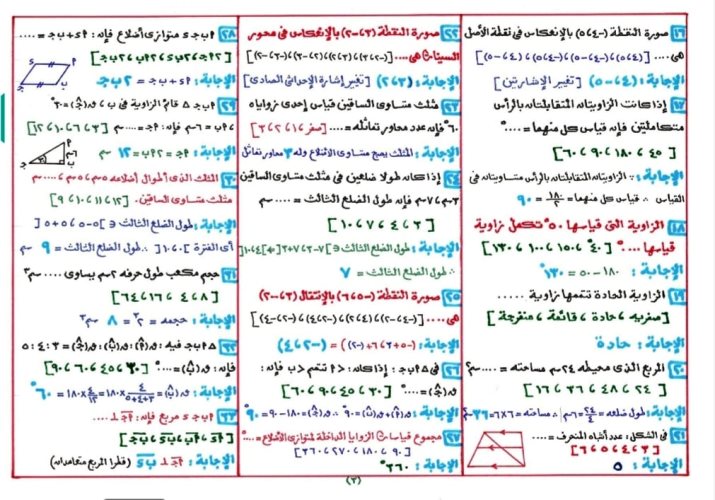 ١٦ صورة النقطة (-٤،٥) بالإنعكاس في نقطة الأصل
هى .... [(٤،٥)،(-٤،-٥)،(-٤،٥)،(٤،-٥)]
الإجابة: (٤،-٥) [تغيير الإشارتين]
١٧ إذا كانت الزاويتان المتقابلتان بالرأس
متكاملتين فإن قياس كل منهما = ....°
[٤٥، ١٨٠، ٩٠، ٦٠]
الإجابة: ∵ الزاويتان المتقابلتان بالرأس متساويتان في
القياس ∴ قياس كل منهما = ١٨٠/٢ = ٩٠
١٨ الزاوية التى قياسها ٥٠° تكمل زاوية
قياسها ....° [٤٠، ١٥٠، ١٠٠، ١٣٠]
الإجابة: ١٨٠ - ٥٠ = ١٣٠°
١٩ الزاوية الحادة تتممها زاوية .....
[صفرية، حادة، قائمة، منفرجة]
الإجابة: حادة
٢٠ المربع الذى محيطه ٢٤سم مساحته = .... سم٢
[٢٤، ٤٨، ٣٦، ١٦]
الإجابة: طول ضلعه = ٢٤/٤ = ٦سم ∴ مساحته = ٦×٦ = ٣٦سم٢
٢١ في الشكل: عدد أشباه المنحرف = ....
[٣، ٤، ٥، ٦]
الإجابة: ٥
٢٢ صورة النقطة (٣،-٢) بالإنعكاس في محور
السينات هى....
الإجابة: (٣،٢) [تغيير إشارة الإحداثى الصادى]
٢٣ مثلث متساوى الساقين قياس إحدى زواياه
٦٠° فإن عدد محاور تماثله = .... [صفر، ١، ٢، ٣]
الإجابة: المثلث يصبح متساوى الأضلاع وله ٣ محاور تماثل
٢٤ إذا كان طولا ضلعين في مثلث متساوى الساقين
٣سم،٧سم فإن طول الضلع الثالث = .... سم
[٣، ٤، ٧، ١٠]
الإجابة: طول الضلع الثالث ∈ ]٧-٣، ٧+٣[ = ]٤،١٠[
∴ طول الضلع الثالث = ٧
٢٥ صورة النقطة (-٥،٦) بالإنتقال (٣،-٢)
هى ....
الإجابة: (-٥+٣، ٦+(-٢)) = (-٢،٤)
٢٦ في △ ٩ب جـ : إذا كان
[٣٠، ٤٥، ٩٠، ٦٠]
٢٧ مجموع قياسات الزوايا الداخلة لمتوازى الأضلاع = ....°
[٩٠، ١٨٠، ٢٧٠، ٣٦٠]
الإجابة: ٣٦٠°
٢٨ ٩ب جـ ء متوازى أضلاع فإن: ٩ء + ب جـ = ....
الإجابة: ٩ء + ب جـ = ٢ ب جـ
٢٩ ٩ب جـ △ قائم الزاوية في ب، ق(جـ) = ٣٠°
٩ب = ٦سم فإن: ٩جـ = .... سم [٣، ٦، ١٠، ١٢]
الإجابة: ٩جـ = ٢ ٩ب = ١٢ سم
٣٠ المثلث الذى أطوال أضلاعه ٥سم، ٥سم، .... سم
مثلث متساوى الساقين. [٩، ١٠، ١١، ١٢]
الإجابة: طول الضلع الثالث ∈ ]٥-٥، ٥+٥[
أى الفترة ]٠،١٠[ ∴ طول الضلع الثالث = ٩ سم
٣١ حجم مكعب طول حرفه ٢سم يساوى .... سم٣
[٨، ٤، ١٦، ٦٤]
الإجابة: حجمه = ٢٣ = ٨ سم٣
٣٢ △ ٩ب جـ فيه : ق(٩): ق(ب): ق(جـ) = ٣ : ٤ : ٥
فإن: ق(ب) = ....° [٣٠، ٤٥، ٦٠، ٩٠]
الإجابة: ق(ب) = ٤/(٣+٤+٥) × ١٨٠ = ٤/١٢ × ١٨٠ = ٦٠°
٣٣ ٩ب جـ ء مربع فإن: ٩جـ ⊥ ....
الإجابة: ٩جـ ⊥ ب ء (قطرا المربع متعامدان)
(٣)